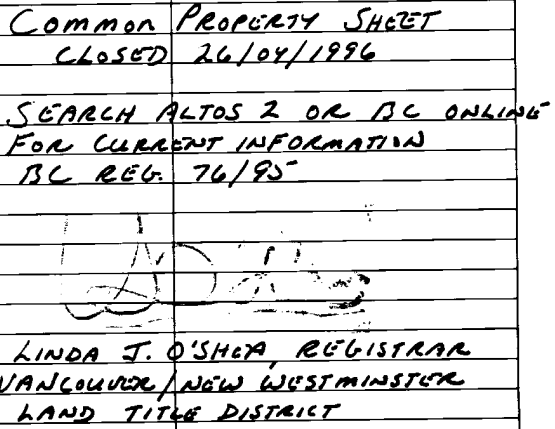 Common PROPERTY SHEET
CLOSED 26/04/1996
SEARCH ALTOS 2 OR BC ONLINE
FOR CURRENT INFORMATION
BC REG. 76/95
LINDA J. O'SHEA, REGISTRAR
VANCOUVER/NEW WESTMINSTER
LAND TITLE DISTRICT